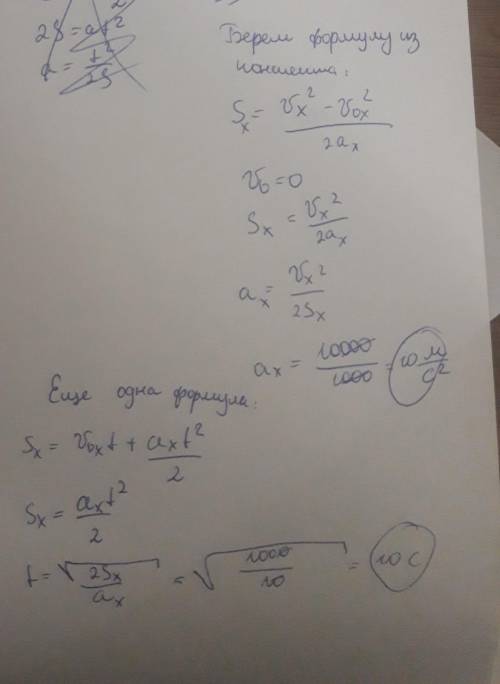 2S = at²
a = t²/2S
Берем формулу из
Sₓ = (vₓ² - v₀ₓ²)/2aₓ
v₀ = 0
Sₓ = vₓ²/2aₓ
aₓ = vₓ²/2Sₓ
aₓ = 10000/1000 = 10 м/с²
Еще одна формула:
Sₓ = v₀ₓt + aₓt²/2
Sₓ = aₓt²/2
t = √(2Sₓ/aₓ) = √(1000/10) = 10 с